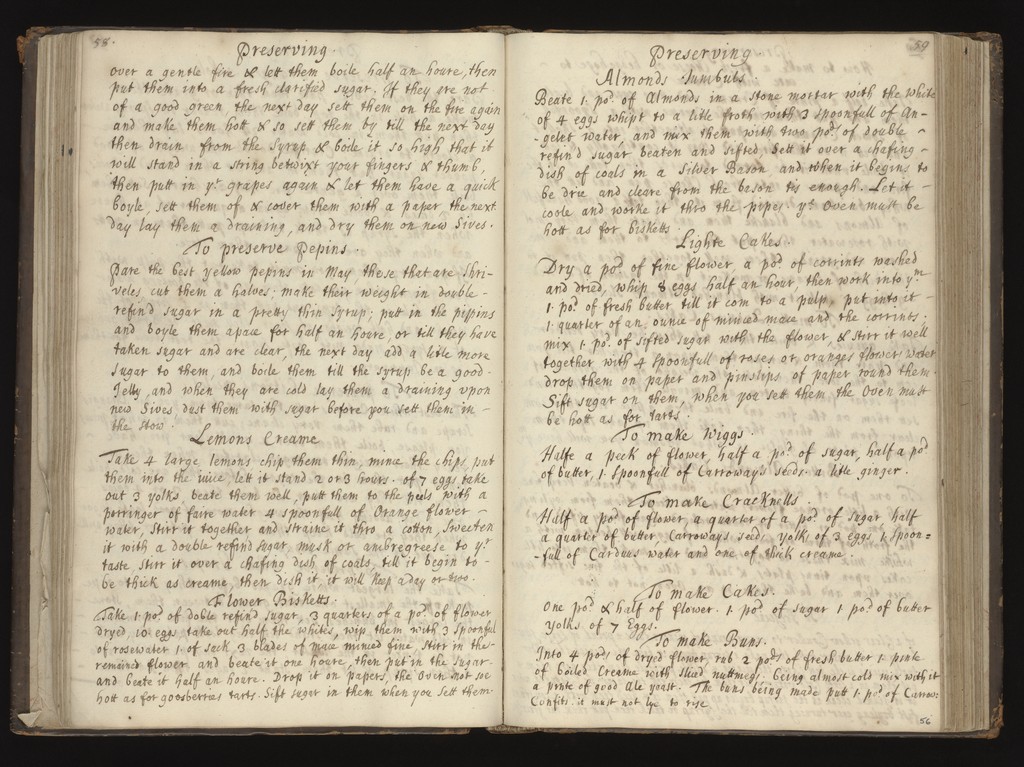 58.
Preserving
over a gentle fire & lett them boile half an houre, then
put them into a fresh clarified sugar. If they are not
of a good green the next day sett them on the fire again
and make them hott & so sett them by till the next day
then drain from the syrup & boile it so high that it
will stand in a string betwixt your fingers & thumb,
then putt in yr grapes again & let them have a quick
boyle sett them of & cover them with a paper the next
day lay them a draining, and dry them on new Sives.
To preserve Pepins.
Pare the best yellow pepins in May, these that are Shri-
veles cut them a halves; make their weight in double-
refind sugar in a pretty thin Syrup; putt in the pipins
and boyle them apace for half an houre, or till they have
taken sugar and are clear, the next day add a litle more
Sugar to them, and boile them till the syrup be a good-
Jelly, and when they are cold lay them a draining vpon
new Sives, dust them with sugar before you sett them in-
the stow.
Lemons Creame
Take 4 large lemons chip them thin, mince the chips, put
them into the iuice, lett it stand 2 or 3 hours. of 7 eggs take
out 3 yolks, beate them well, putt them to the peels with a
porringer of faire water 4 spoonfull of Orange flower-
water, stirr it together and straine it thro a cotton, Sweeten
it with a double refind sugar, musk or ambregreese to yr
taste, stirr it over a chafing dish of coals, till it begin to-
be thick as creame, then dish it, it will keep a day or two.
Flower Bisketts.
Take 1 pod of doble refind sugar, 3 quarters of a pod of flower
dryed, 10 eggs take out half the whites, wip them with 3 spoonful
of rosewater 1 of sack, 3 blades of mace minced fine, stirr in the-
remaind flower, and beate it one houre, then put in the sugar-
and beate it half an houre. Drop it on papers, the oven not soe
hott as for goosberries tarts. Sift sugar in them when you sett them.
59
Preserving
Almonds Jumbuls.
Beate 1. pod. of Almonds in a stone mortar with the white
of 4 eggs whipt to a litle froth with 3 spoonfull of An-
-gelet water, and mix them with two pod. of double-
refind sugar beaten and sifted. Sett it over a chafing-
dish of coals in a Silver Bason and when it begins to
be drie and cleare from the bason tis enough. Let it-
coole and worke it thro the pipes. yr Oven must be
hott as for bisketts.
Lighte Cakes.
Dry a pod. of fine flower a pod. of corrints washed
and dried, whip 8 eggs half an hour, then work into ym
1. pod. of fresh butter till it com to a pulp, put into it-
1 quarter of an ounce of minced mace and the corrints;
mix 1. pod. of sifted sugar with the flower, & stirr it well
together with 4 spoonfull of roses or oranges flower water
drop them on paper and pin slips of paper round them.
Sift sugar on them, when you sett them the Oven must
be hott as for tarts.
To make Wiggs.
Halfe a peck of flower, half a pod. of sugar, half a pod
of butter, 1. spoonfull of Carroways seeds. a litle ginger.
To make Cracknells.
Half a pod of flower, a quarter of a pod. of sugar half
a quarter of butter, Carroways seeds yolk of 3 eggs 1. spoon=
-full of Carduus water and one of thick creame.
To make Cakes.
One pod & half of flower. 1 pod of sugar 1 pod of butter
yolks of 7 Eggs.
To make Buns.
Into 4 pods of dryed flower, rub 2 pods of fresh butter 1. pinte
of boiled creame with sliced nuttmeg; being almost cold mix with it
a pinte of good Ale yeast. The buns being made putt 1 pod of Carrow:
Confits. it must not lye to rise
56